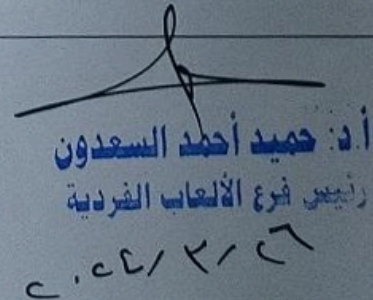 أ.د: حميد أحمد السعدون
رئيس فرع الألعاب الفردية
٢٠٢٤/٣/٢٦